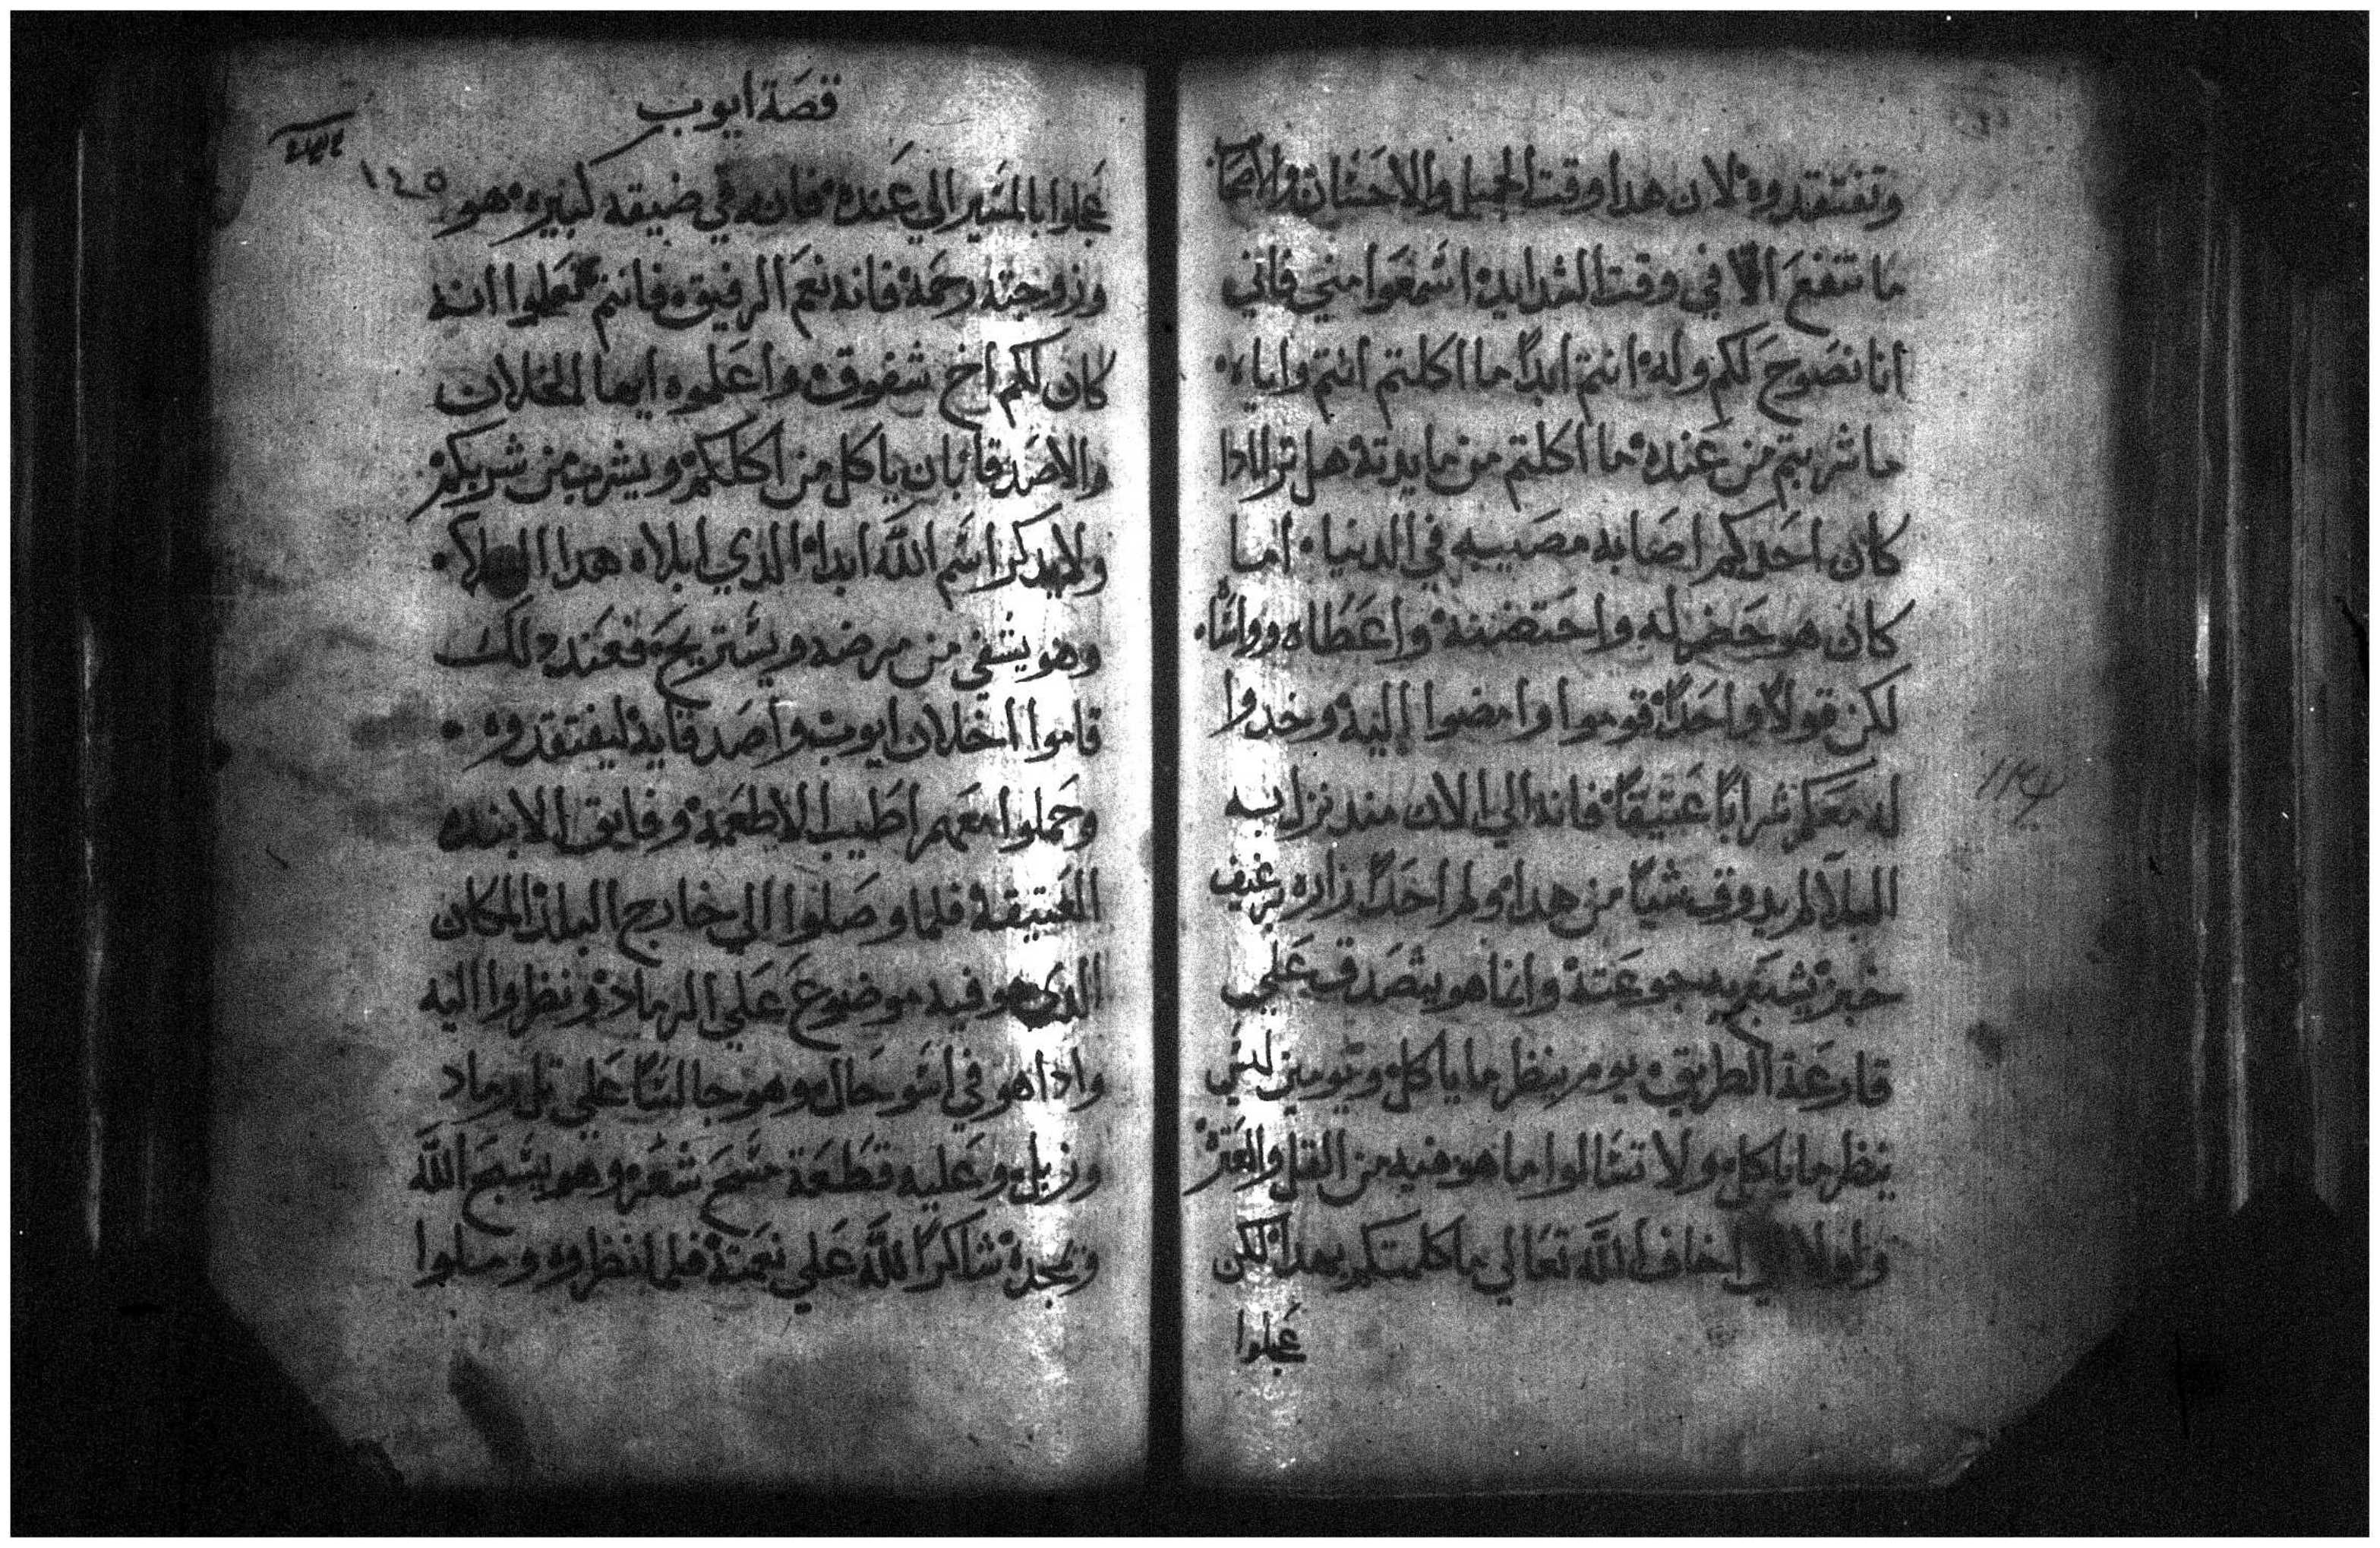 وتفتقدوه لان هدا وقت الجميل والاحسان
ما تنفع الا في وقت الشدايد اسمعوا مني فاني
انا نصوح لكم وله انتم ابداً ما اكلتم انتم واياه
ما شربتم من عنده ما اكلتم من مايدته هل ترا ادا
كان احدكم اصابه مصيبه في الدنيا اما
كان هو حضر له واحتضنه واعطاه وواسا
لكن قولاً واحداً قوموا وامضوا اليه وخدوا
له معكم شراباً عتيقاً فانه الي الان مند نزل به
البلا لم يدوق شياً من هدا ولم احداً زاره برغيف
خبز يشبع به جوعته وانما هو يتصدق علي
قارعة الطريق يوم ينظر ما ياكل ويومين ليس
ينظر ما ياكل ولا تسالوا ما هو فيه من القل والعتز
ولولا اخاف الله تعالي ما كلمتكم بهدا لكن
عجلوا
قصة ايوب
١٤٥
عجلوا بالمسير الي عنده فانه في ضيقه كبيره هو
وزوجته رحمة فانه نعم الرفيق فانتم تعملوا انه
كان لكم اخ شفوق واعلموه ايها الخلان
والاصدقا بان ياكل من اكلكم ويشرب من شربكم
ولا يدكر اسم الله ابدا الدي ابلاه هدا البلا
وهو يشفي من مرضه ويستريح فعند دلك
قاموا اخلان ايوب واصدقايه ليفتقدوه
وحملوا معهم اطيب الاطعمة وفايق الانبده
العتيقة فلما وصلوا الي خارج البلد المكان
الدي هو فيه موضوع علي الرماد ونظروا اليه
وادا هو في اسو حال وهو جالساً علي تل رماد
وزبل وعليه قطعة مسح شعر وهو يسبح الله
ويمجده شاكراً لله علي نعمته فلما نظروه وصلوا